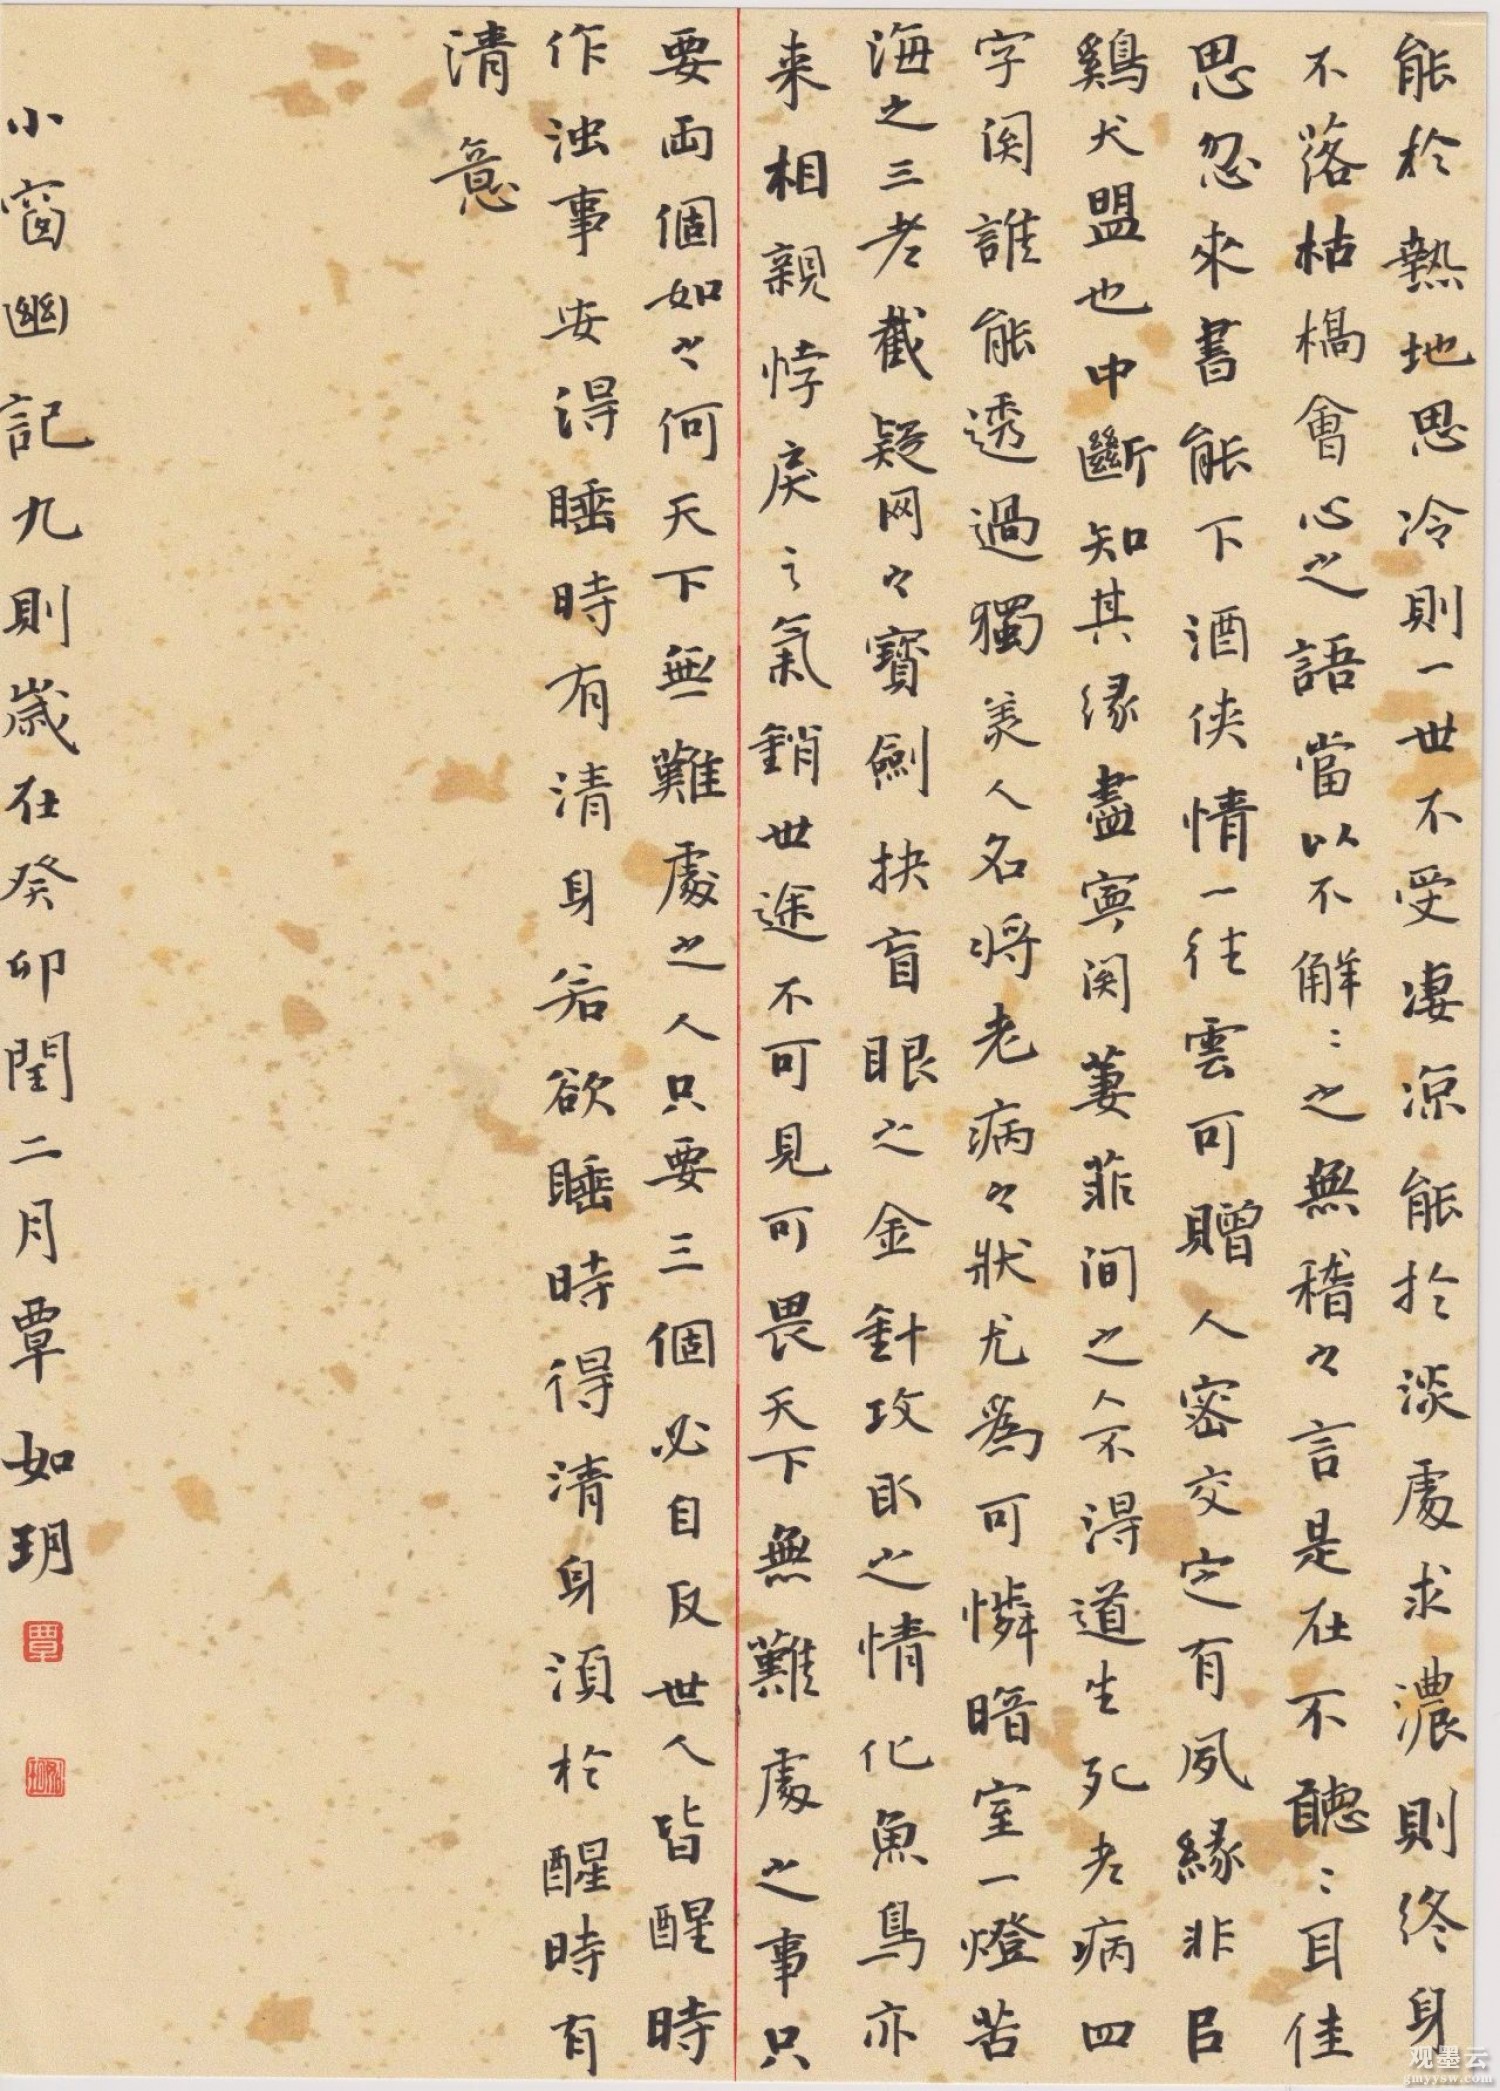 能於熱地思冷則一世不受凄涼能於淡處求濃則終身
不落枯槁會心之語當以不解〻之無稽々言是在不聽〻耳佳
思忽來書能下酒俠情一往雲可贈人密交定有夙緣非㠯
鷄犬盟也中斷知其缘盡寧関萋菲間之人不得道生死老病四
字関誰能透過獨美人名将老病々狀尤為可憐暗室一燈苦
海之三老截疑网々寳劍抉盲眼之金針攻取之情化魚鳥亦
来相親悖戾之氣銷世途不可見可畏天下無難處之事只
要両個如之何天下無難處之人只要三個必自反世人皆醒時
作浊事安得睡時有清身若欲睡時得清身須於醒時有
清意
小窗幽記九則歲在癸卯閏二月覃如玥
覃
观墨云
gmyysw.com